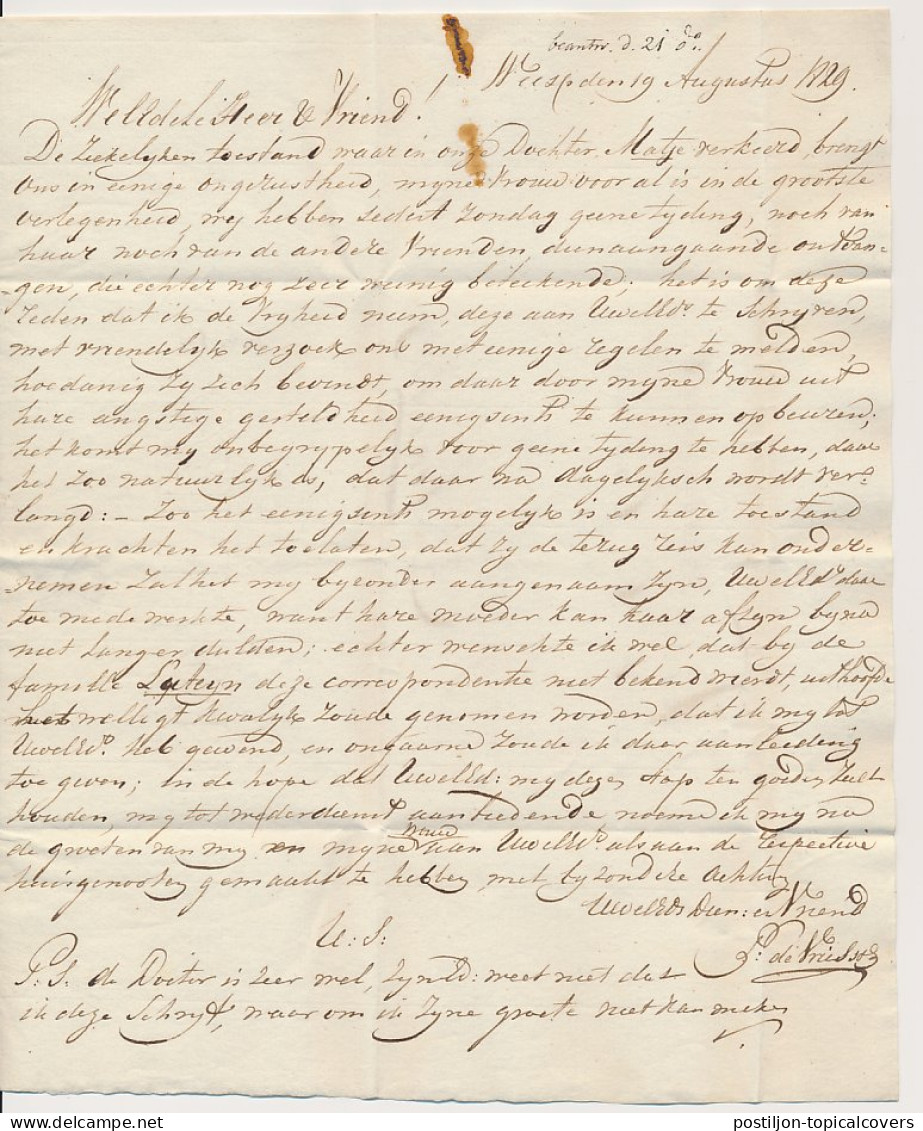 beantw. d. 21 do.
Weesp den 19 Augustus 1829.
WelEdele Heer & Vriend!
De Ziekelyken toestand waar in onze Dochter Matje verkeerd, brengt
ons in eenige ongerustheid, myne Vrouw voor al is in de grootste
verlegenheid, wy hebben zedert Zondag geene tyding, noch van
haar noch van de andere Vrienden, dienaangaande ontvan-
-gen, die echter nog zeer weinig beteekende; het is om deze
reden dat ik de Vryheid neem, deze aan UwelEdr. te Schryven,
met vriendelyk verzoek ons met eenige regelen te melden,
hoedanig zy zich bevindt, om daar door myne Vrouw uit
hare angstige gesteldheid eenigsints te kunnen opbeuren;
het komt my onbegrypelyk voor geene tyding te hebben, daar
het zoo natuurlyk is, dat daar na dagelyksch wordt ver-
langd: - Zoo het eenigsints mogelyk is en hare toestand
en krachten het toelaten, dat zy de terug reis kan onder-
nemen zal het my byzonder aangenaam zyn, UwelEdr. daar
toe mede werkte, want hare moeder kan haar afzyn byna
niet langer dulden; echter wenschte ik wel, dat by de
famille Luteyn deze correspondentie niet bekend wierdt, uithoofde
het welligt kwalyk zoude genomen worden, dat ik my tot
UwelEdr. heb gewend, en ongaarne zoude ik daar aanleiding
toe geven; in de hope dat UwelEd: my dezen stap ten goeden zult
houden, my tot wederdienst aanbiedende noeme ik my na
de groeten van my en myne Vrouw aan UwelEdr. als aan de respective
huisgenooten gemaakt te hebben met byzondere achting
UwelEds Dien: en Vriend
P. de Vries
U: S:
P: S. de Docter is zeer wel, zynEd: weet niet dat
ik deze Schryf, waar om ik zyne groete niet kan melden
postiljon-topicalcovers